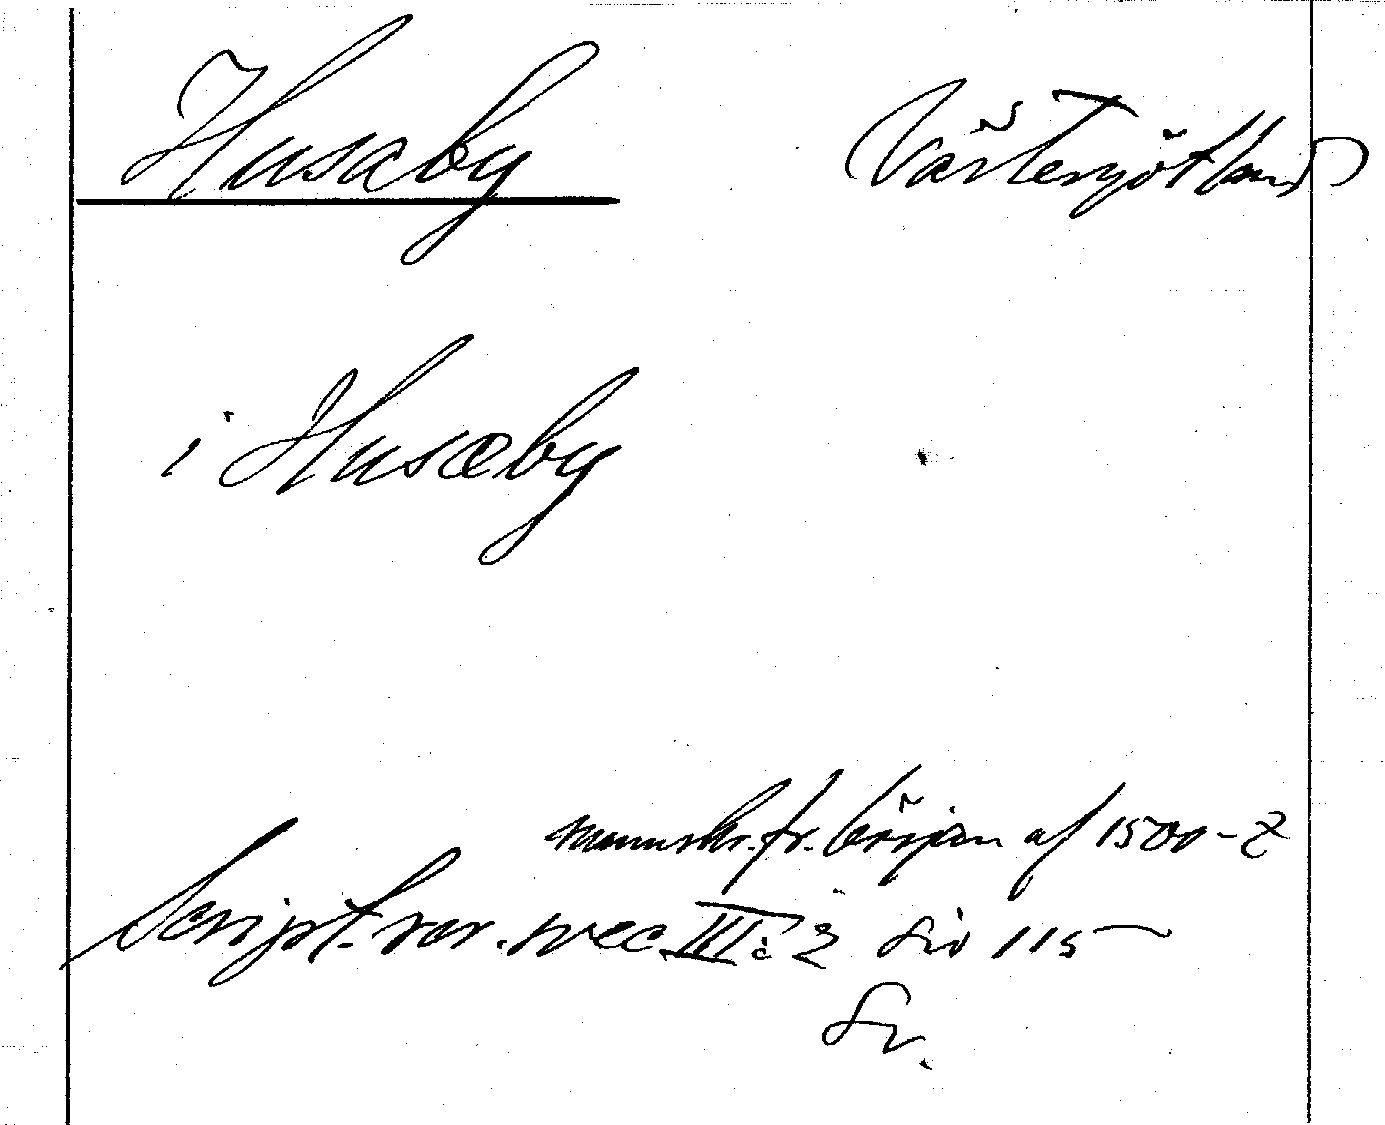 Husaby (Västergötland)
i Husæby
manuskr. fr. början af 1500-t
Script. rer. svec III: 2 sid 115
Sv.